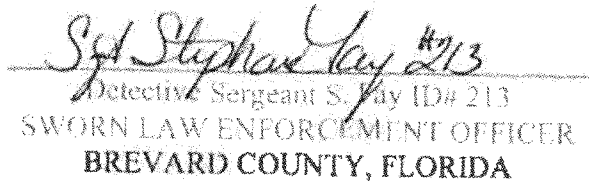 Sgt Stephan Fay #213
Detective Sergeant S. Fay ID# 213
SWORN LAW ENFORCEMENT OFFICER
BREVARD COUNTY, FLORIDA